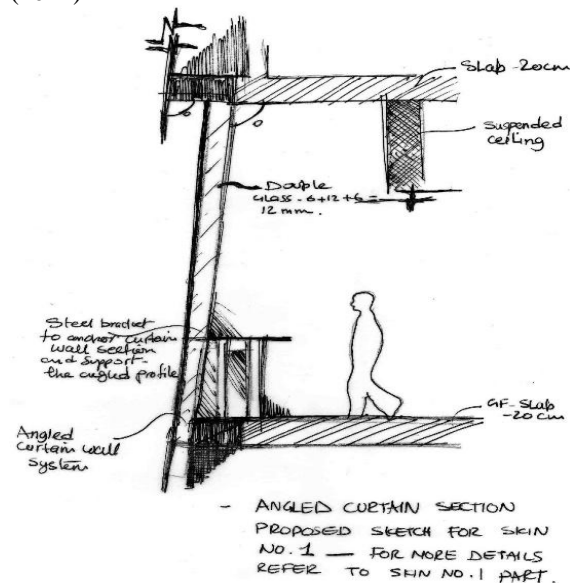 Slab-20cm
Suspended
ceiling
Double
Glass-6+12+6=
12 mm.
Steel bracket
to anchor curtain
wall section
and support-
the angled profile
GF-Slab
-20cm
Angled
Curtain wall
System
- ANGLED CURTAIN SECTION
PROPOSED SKETCH FOR SKIN
NO.1 — FOR MORE DETAILS
REFER TO SKIN NO.1 PART.